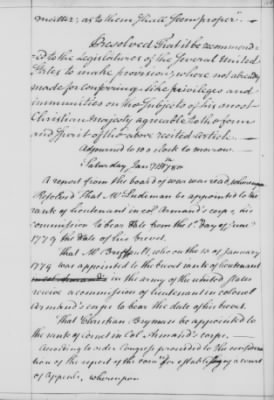 matter; as to them shall seem proper".
Resolved That it be recommend-
ed to the Legislatures of the several United
States to make provision, where not already
made for conferring like privileges and
immunities on the subjects of his most
Christian Majesty agreeable to the form
and spirit of the above recited article.
Adjourned to 10 o'Clock to morrow.
Saturday Jany 15th 1780
A report from the board of war was read, whereupon
Resolved That Mr be appointed to the
rank of lieutenant in col Armand's corps, his
commission to bear date from the 1st Day of June
1779 the date of his brevet.
That Mr who on the 13 of January
1779 was appointed to the brevet rank of lieutenant
in the army of the united states
receive a commission of lieutenant in colonel
Armand's corps to bear the date of his brevet.
That Christian be appointed to
the rank of cornet in Col. Armand's corps.
According to order Congress proceeded to the considera-
tion of the report of the comee for establishing a court
of Appeals, whereupon